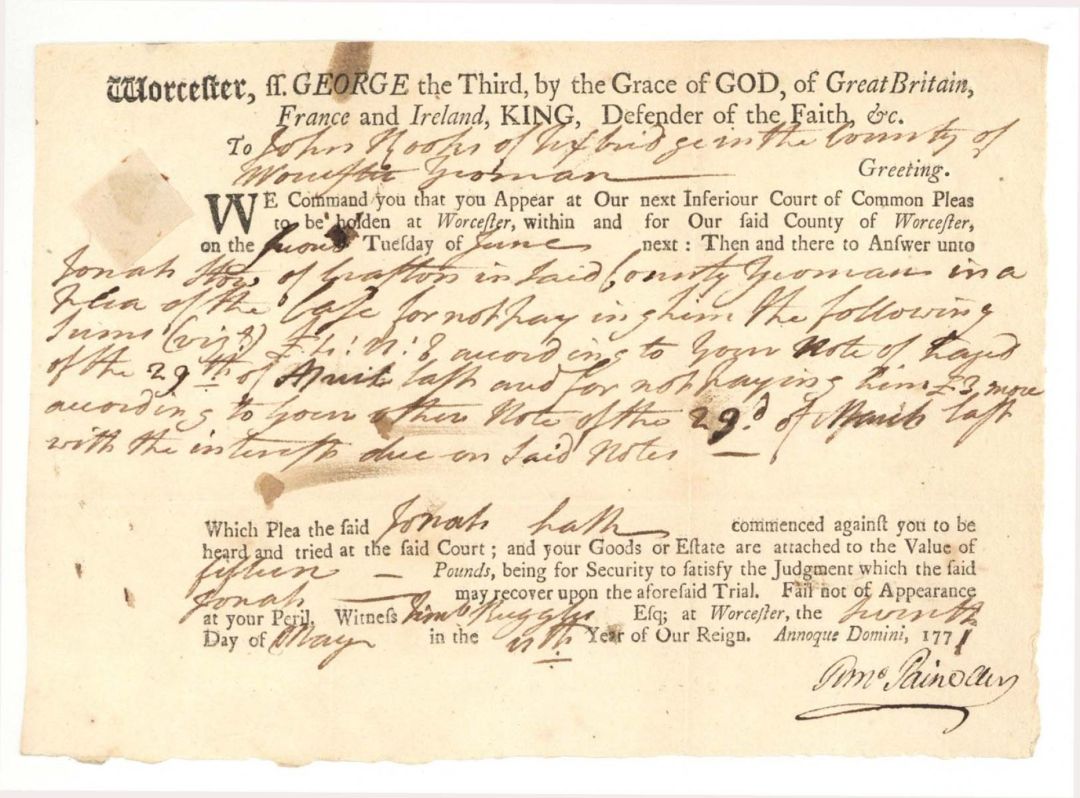 Worcester, ſſ. GEORGE the Third, by the Grace of GOD, of Great Britain,
France and Ireland, KING, Defender of the Faith, &c.
To John of Uxbridge in the County of
Worcester Yeoman Greeting.
WE Command you that you Appear at Our next Inferiour Court of Common Pleas
to be holden at Worceſter, within and for Our ſaid County of Worceſter,
on the Tuesday of June next: Then and there to Answer unto
Jonah of Grafton in Said County Yeoman in a
Plea of the Caſe for not paying him the following
Sums according to your Note of
of the 29th of last and for not paying him £3 more
according to your other Note of the 29d of last
with the interest due on Said Notes —
Which Plea the ſaid Jonah hath commenced againſt you to be
heard and tried at the ſaid Court; and your Goods or Eſtate are attached to the Value of
fifteen — Pounds, being for Security to ſatisfy the Judgment which the ſaid
Jonah may recover upon the aforeſaid Trial. Fail not of Appearance
at your Peril. Witneſs Timo Ruggles Eſq; at Worceſter, the
Day of May in the 11th Year of Our Reign. Annoque Domini, 1771
Paine